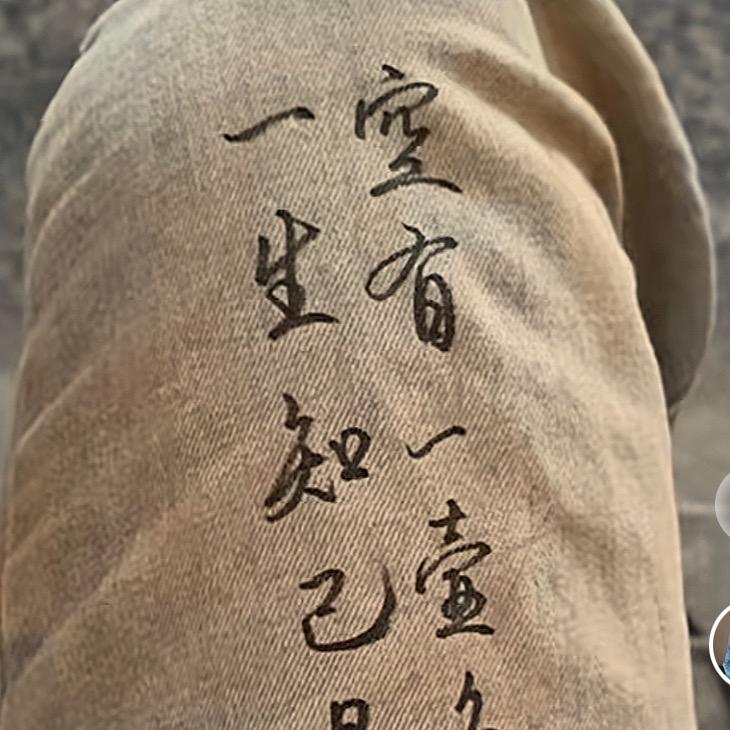 空有一壶
一生知己